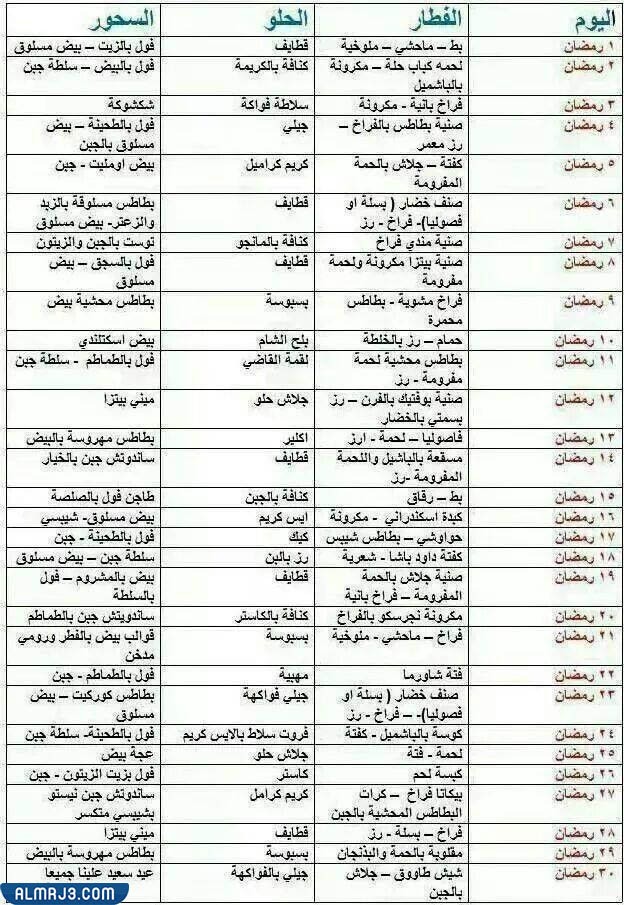 اليوم الفطار الحلو السحور
١ رمضان بط – ماحشي – ملوخية قطايف فول بالزيت – بيض مسلوق
٢ رمضان لحمه كباب حلة – مكرونة كنافة بالكريمة فول بالبيض – سلطة جبن
بالباشميل
٣ رمضان فراخ بانية - مكرونة سلاطة فواكة شكشوكة
٤ رمضان صنية بطاطس بالفراخ – جيلي فول بالطحينة – بيض
رز معمر مسلوق بالجبن
٥ رمضان كفتة – جلاش بالحمة كريم كراميل بيض اومليت - جبن
المفرومة
٦ رمضان صنف خضار ( بسلة او قطايف بطاطس مسلوقة بالزبد
فصوليا)- فراخ - رز والزعتر- بيض مسلوق
٧ رمضان صنية مندي فراخ كنافة بالمانجو توست بالجبن والزيتون
٨ رمضان صنية بيتزا مكرونة ولحمة قطايف فول بالسجق – بيض
مفرومة مسلوق
٩ رمضان فراخ مشوية - بطاطس بسبوسة بطاطس محشية بيض
محمرة
١٠ رمضان حمام – رز بالخلطة بلح الشام بيض اسكتلندي
١١ رمضان بطاطس محشية لحمة لقمة القاضي فول بالطماطم - سلطة جبن
مفرومة - رز
١٢ رمضان صنية بوفتيك بالفرن – رز جلاش حلو ميني بيتزا
بسمتي بالخضار
١٣ رمضان فاصوليا – لحمة - ارز اكلير بطاطس مهروسة بالبيض
١٤ رمضان مسقعة بالباشيل واللحمة قطايف ساندوتش جبن بالخيار
المفرومة -رز
١٥ رمضان بط – رقاق كنافة بالجبن طاجن فول بالصلصة
١٦ رمضان كبدة اسكندراني - مكرونة ايس كريم بيض مسلوق- شيبسي
١٧ رمضان حواوشي – بطاطس شيبس كيك فول بالطحينة - جبن
١٨ رمضان كفتة داود باشا - شعرية رز بالبن سلطة جبن – بيض مسلوق
١٩ رمضان صنية جلاش بالحمة قطايف بيض بالمشروم – فول
المفرومة – فراخ بانية بالسلطة
٢٠ رمضان مكرونة نجرسكو بالفراخ كنافة بالكاستر ساندويتش جبن بالطماطم
٢١ رمضان فراخ – ماحشي - ملوخية بسبوسة قوالب بيض بالفطر ورومي
مدخن
٢٢ رمضان فتة شاورما مهبية فول بالطماطم - جبن
٢٣ رمضان صنف خضار ( بسلة او جيلي فواكهة بطاطس كوركيت – بيض
فصوليا)- – فراخ - رز مسلوق
٢٤ رمضان كوسة بالباشميل - كفتة فروت سلاط بالايس كريم فول بالطحينة- سلطة جبن
٢٥ رمضان لحمة - فتة جلاش حلو عجة بيض
٢٦ رمضان كبسة لحم كاستر فول بزيت الزيتون - جبن
٢٧ رمضان بيكاتا فراخ – كرات كريم كرامل ساندوتش جبن نيستو
البطاطس المحشية بالجبن بشيبسي متكسر
٢٨ رمضان فراخ – بسلة - رز قطايف ميني بيتزا
٢٩ رمضان مقلوبة بالحمة والبذنجان بسبوسة بطاطس مهروسة بالبيض
٣٠ رمضان شيش طاووق – جلاش جيلي بالفواكهة عيد سعيد علينا جميعا
بالجبن
ALMRJ3.COM